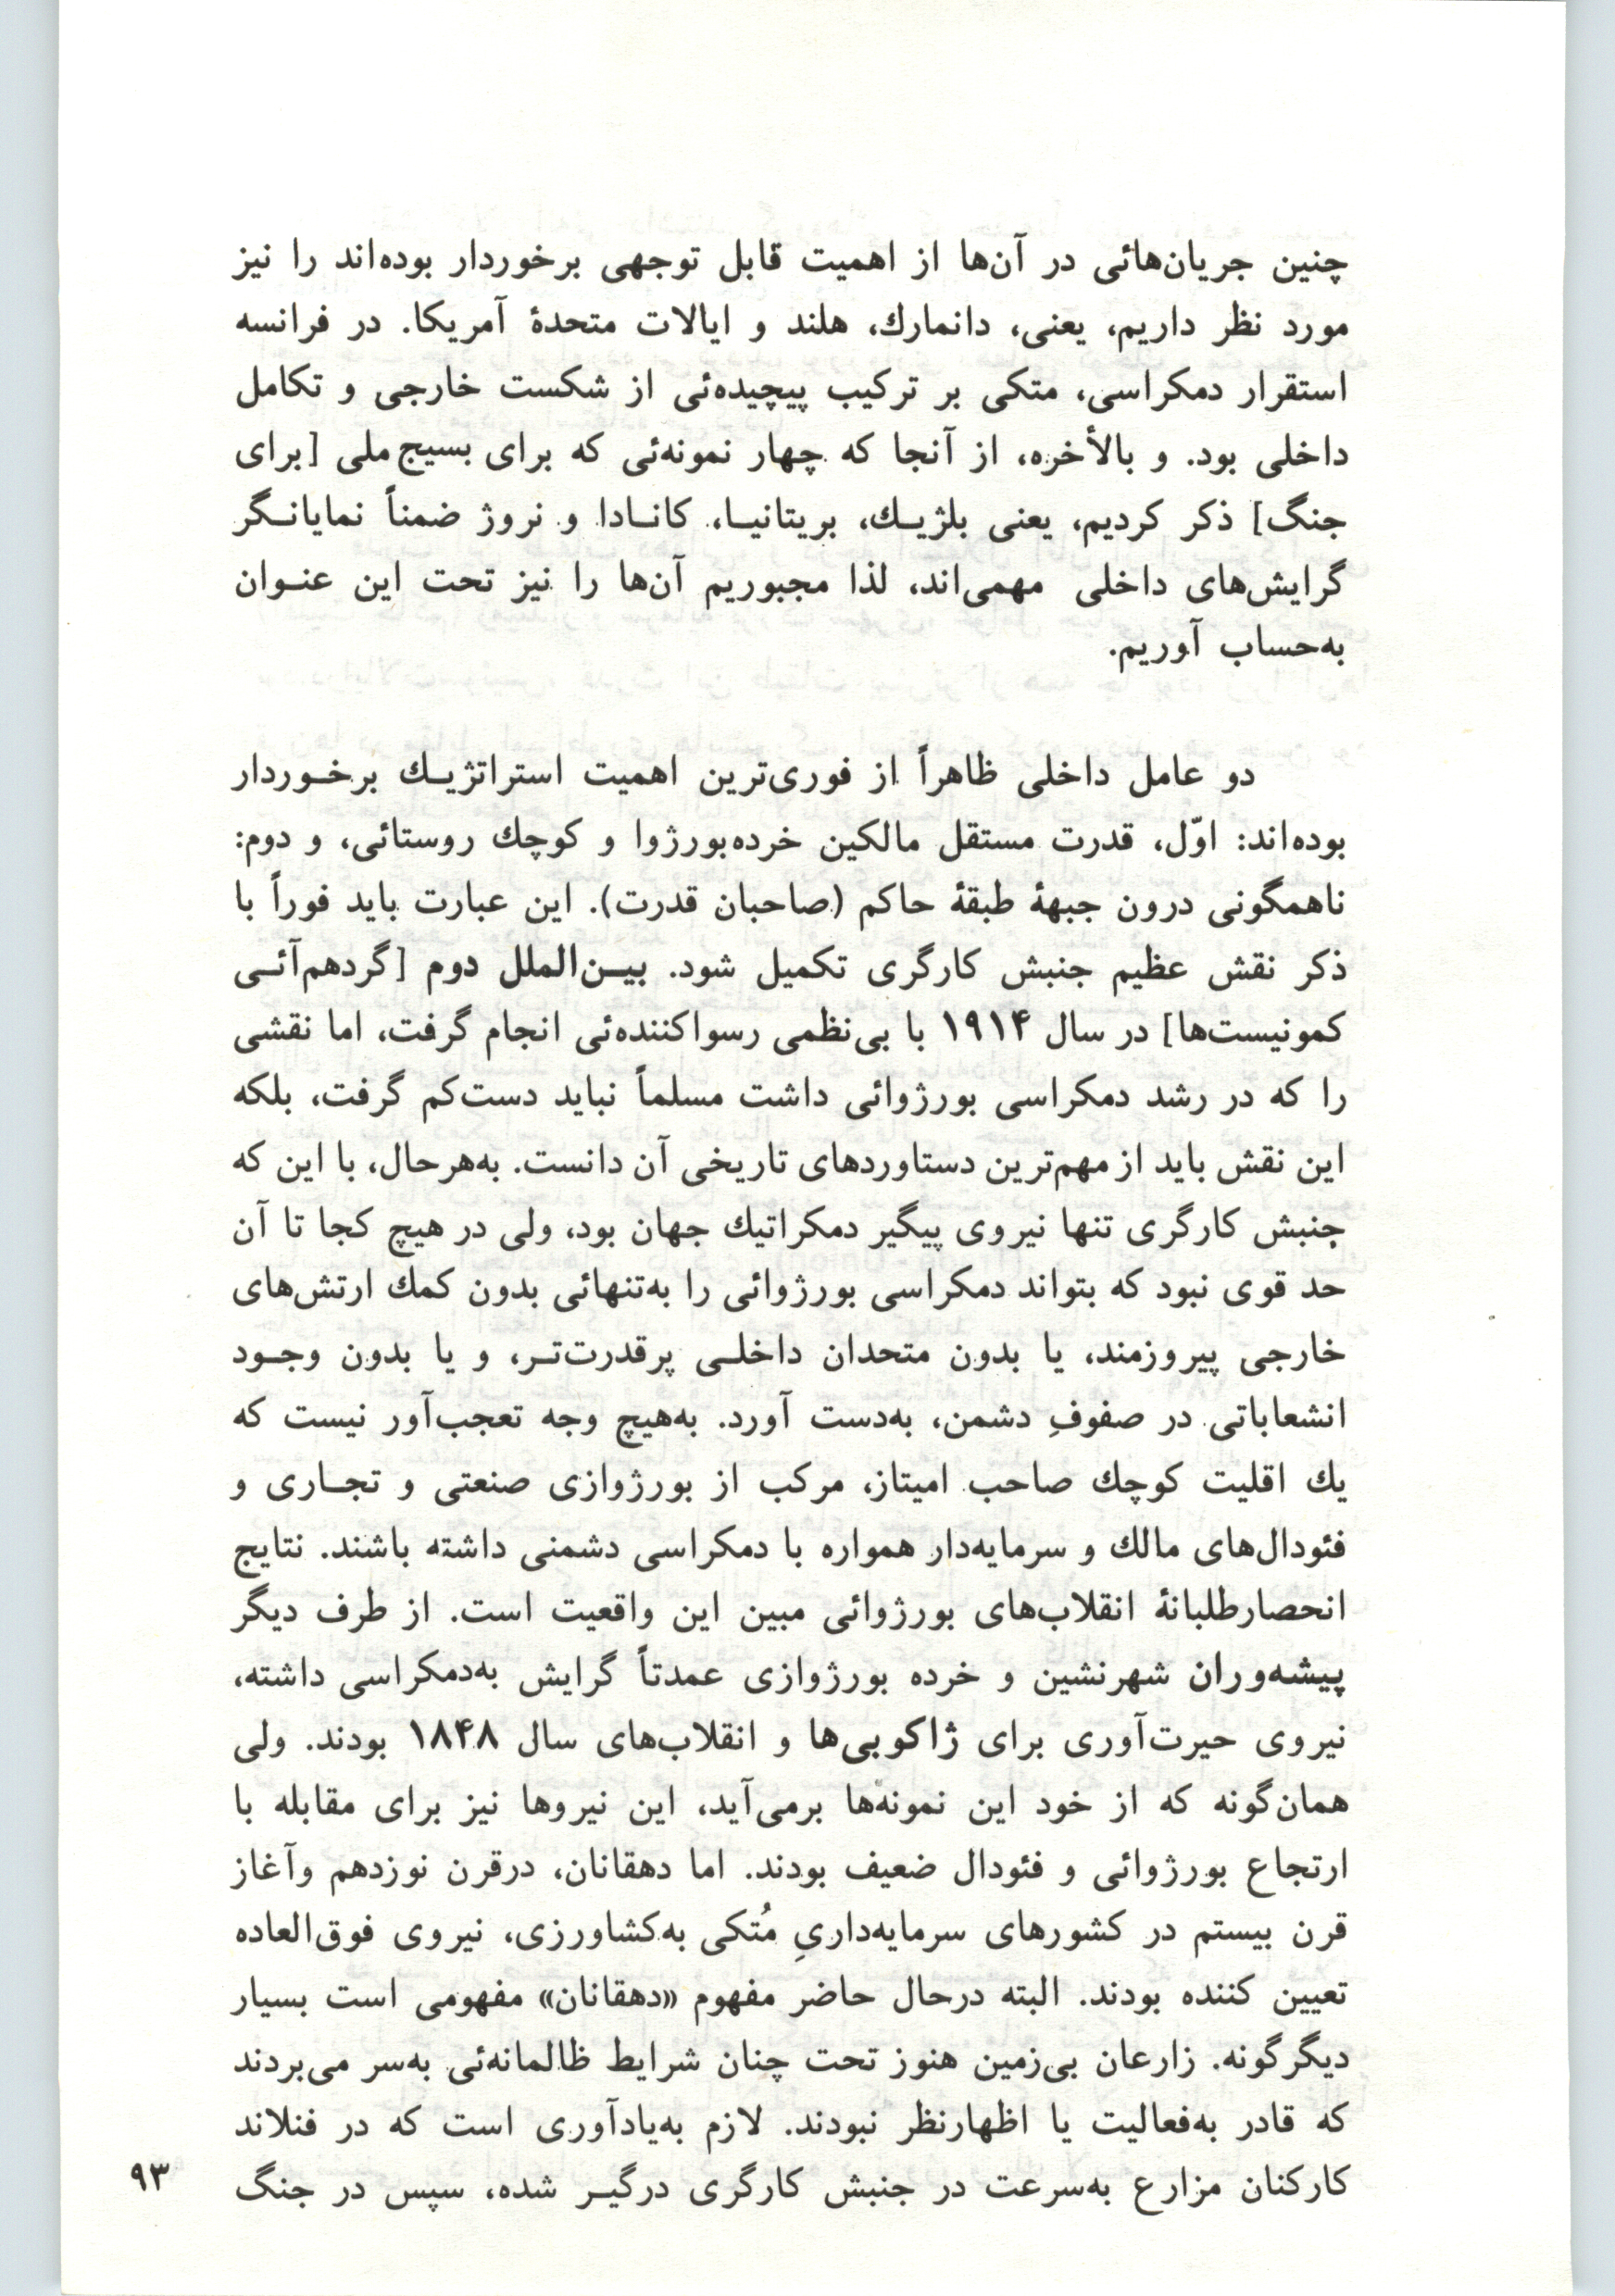 چنین جریان‌هائی در آن‌ها از اهمیت قابل توجهی برخوردار بوده‌اند را نیز
مورد نظر داریم، یعنی، دانمارك، هلند و ایالات متحدهٔ آمریکا. در فرانسه
استقرار دمکراسی، متکی بر ترکیب پیچیده‌ئی از شکست خارجی و تکامل
داخلی بود. و بالأخره، از آنجا که چهار نمونه‌ئی که برای بسیج ملی [برای
جنگ] ذکر کردیم، یعنی بلژیـك، بریتانیـا، کانـادا و نروژ ضمناً نمایانـگر
گرایش‌های داخلی مهمی‌اند، لذا مجبوریم آن‌ها را نیز تحت این عنـوان
به‌حساب آوریم.
دو عامل داخلی ظاهراً از فوری‌ترین اهمیت استراتژیـك برخـوردار
بوده‌اند: اوّل، قدرت مستقل مالکین خرده‌بورژوا و کوچك روستائی، و دوم:
ناهمگونی درون جبههٔ طبقهٔ حاکم (صاحبان قدرت). این عبارت باید فوراً با
ذکر نقش عظیم جنبش کارگری تکمیل شود. بیـن‌الملل دوم [گردهم‌آئـی
کمونیست‌ها] در سال ۱۹۱۴ با بی‌نظمی رسواکننده‌ئی انجام گرفت، اما نقشی
را که در رشد دمکراسی بورژوائی داشت مسلماً نباید دست‌کم گرفت، بلکه
این نقش باید از مهم‌ترین دستاوردهای تاریخی آن دانست. به‌هرحال، با این که
جنبش کارگری تنها نیروی پیگیر دمکراتیك جهان بود، ولی در هیچ کجا تا آن
حد قوی نبود که بتواند دمکراسی بورژوائی را به‌تنهائی بدون کمك ارتش‌های
خارجی پیروزمند، یا بدون متحدان داخلـی پرقدرت‌تـر، و یا بدون وجـود
انشعاباتی در صفوفِ دشمن، به‌دست آورد. به‌هیچ وجه تعجب‌آور نیست که
یك اقلیت کوچك صاحب امیتاز، مرکب از بورژوازی صنعتی و تجـاری و
فئودال‌های مالك و سرمایه‌دار همواره با دمکراسی دشمنی داشته باشند. نتایج
انحصارطلبانهٔ انقلاب‌های بورژوائی مبین این واقعیت است. از طرف دیگر
پیشه‌وران شهرنشین و خرده بورژوازی عمدتاً گرایش به‌دمکراسی داشته،
نیروی حیرت‌آوری برای ژاکوبی‌ها و انقلاب‌های سال ۱۸۴۸ بودند. ولی
همان‌گونه که از خود این نمونه‌ها برمی‌آید، این نیروها نیز برای مقابله با
ارتجاع بورژوائی و فئودال ضعیف بودند. اما دهقانان، درقرن نوزدهم وآغاز
قرن بیستم در کشورهای سرمایه‌داریِ مُتکی به‌کشاورزی، نیروی فوق‌العاده
تعیین کننده بودند. البته درحال حاضر مفهوم «دهقانان» مفهومی است بسیار
دیگرگونه. زارعان بی‌زمین هنوز تحت چنان شرایط ظالمانه‌ئی به‌سر می‌بردند
که قادر به‌فعالیت یا اظهارنظر نبودند. لازم به‌یادآوری است که در فنلاند
کارکنان مزارع به‌سرعت در جنبش کارگری درگیـر شده، سپس در جنگ
۹۳